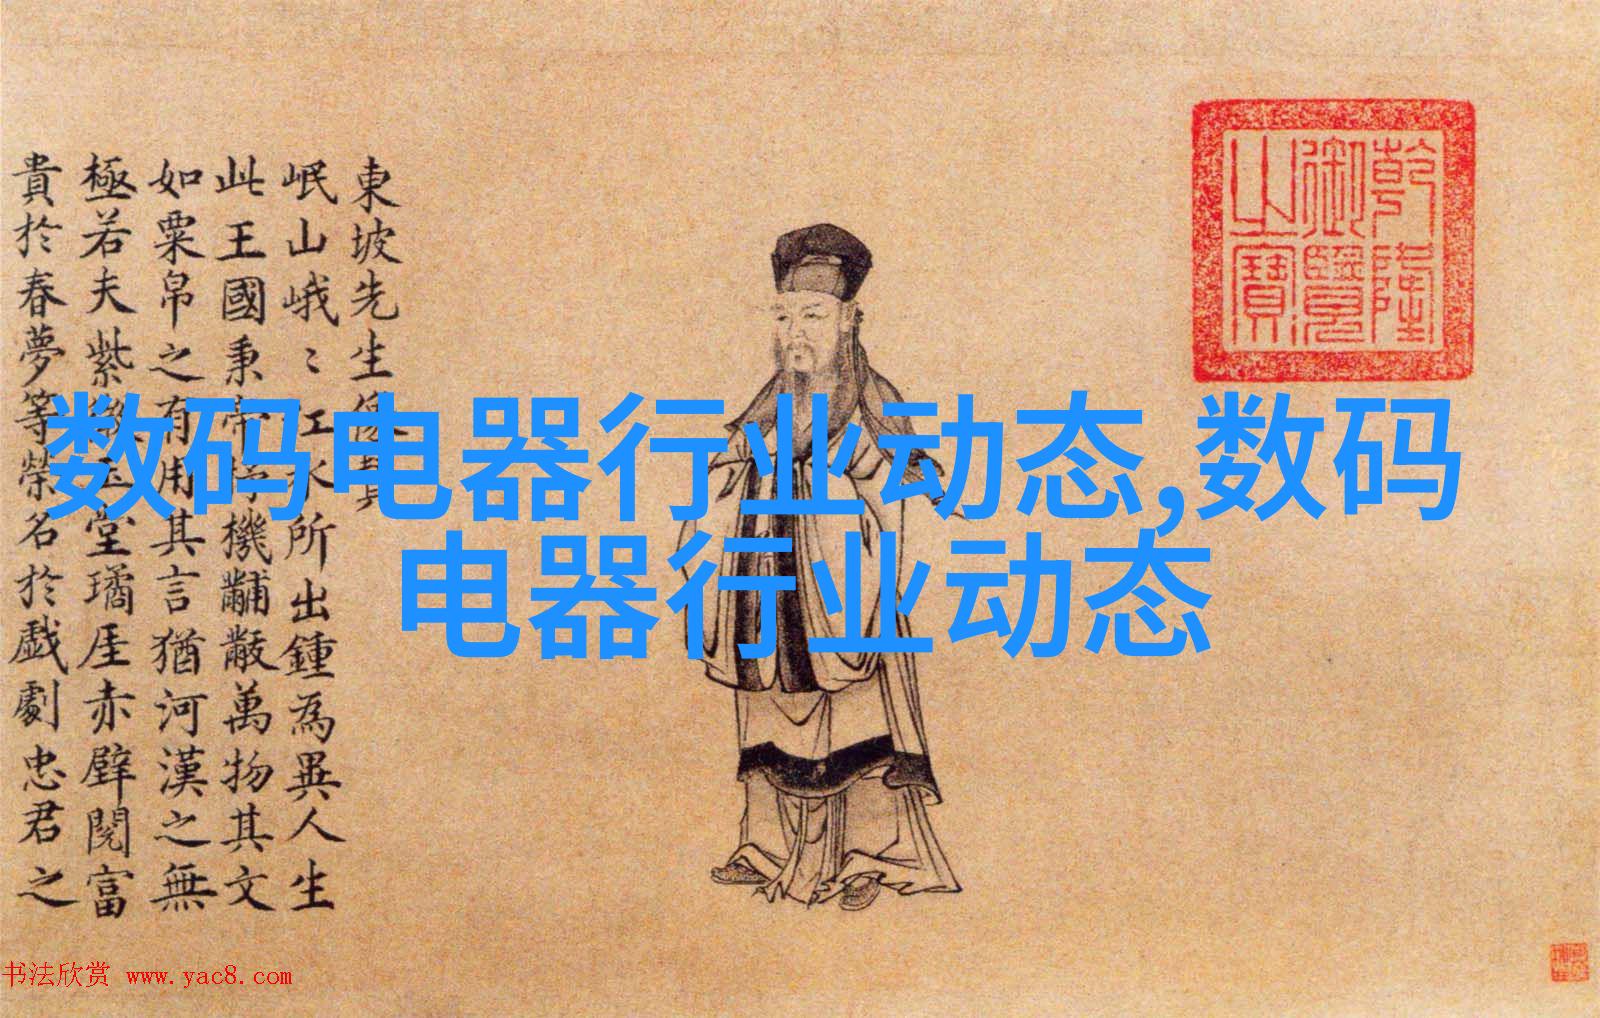 東坡先生像
岷山峨〻江水所出鍾為異人生
此王國秉帝杼機黼黻萬物其文
如粟帛之有用其言猶河漢之無
極若夫紫微玉堂璚厓赤壁閱富
貴於春夢等榮名於戲劇忠君之
乾隆
御覽
之寶
数码电器行业动态,数码
电器行业动态
书法欣赏 www.yac8.com